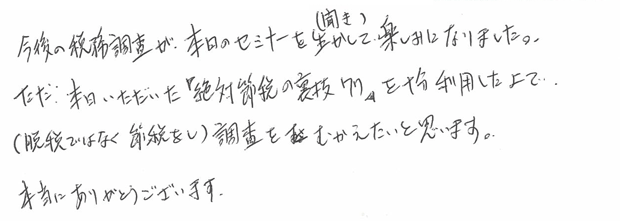 (聞き)
今後の税務調査が、本日のセミナーを生かして楽しみになりました。
ただ、本日いただいた『絶対節税の裏技77』を十分利用した上で、
(脱税ではなく節税をし)調査をむかえたいと思います。
本当にありがとうございます。